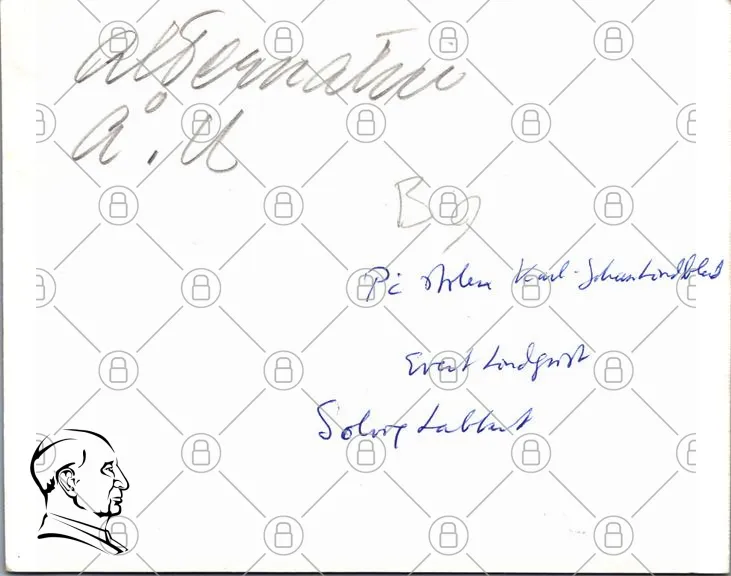 alternativ
å. U
På stolen Karl-Johan Lindblad
Evert Lindqvist
Solvig Labbart